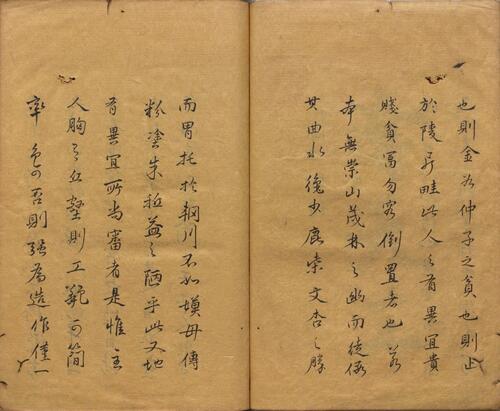 也則金谷仲子之貧也則止
於陵片畦此人之有異宜貴
賤貧富勿容倒置者也若
本無崇山茂林之幽而徒假
其曲水絕少鹿柴文杏之勝
而冒托於輞川不如嫫母傅
粉塗朱祗益之陋乎此又地
有異宜所當審者是惟主
人胸有丘壑則工麗可簡
率亦可否則強為造作僅一